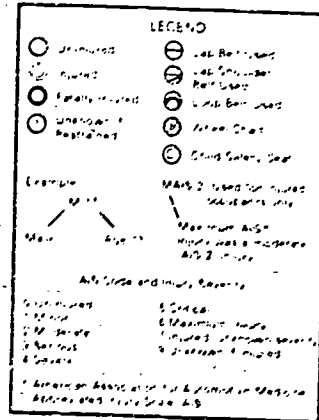 LEGEND
Uninjured
Injured
Fatally Injured
Unknown if
Restrained
Lap Belt Used
Lap Shoulder
Belt Used
Belt Used
Wheel Chair
Child Safety Seat
Example
Male
MAIS 2 Used for injured
occupants only
Maximum AIS
injury was a moderate
AIS 2 injury
AIS Code and Injury Severity
0 Uninjured
1 Minor
2 Moderate
3 Serious
4 Severe
5 Critical
6 Maximum injury
Injured, unknown severity
9 Unknown if injured
American Association for Automotive Medicine
Abbreviated Injury Scale AIS